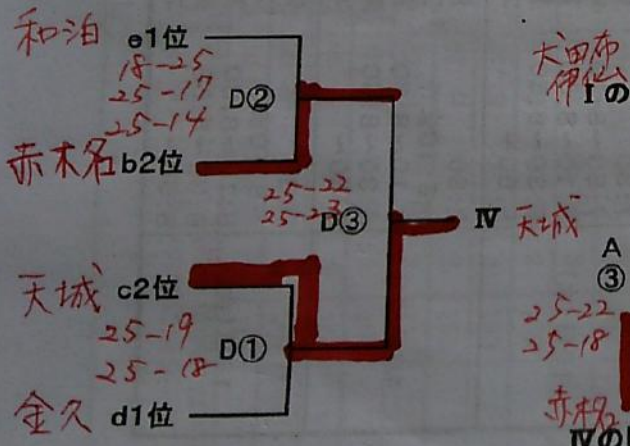 和泊 e1位
18-25
25-17
25-14
D②
赤木名 b2位
25-22
25-23
D③
Ⅳ 天城
天城 c2位
25-19
25-18
D①
金久 d1位
犬田布
伊仙
Ⅰの
A
③
25-22
25-18
赤木名
Ⅳの